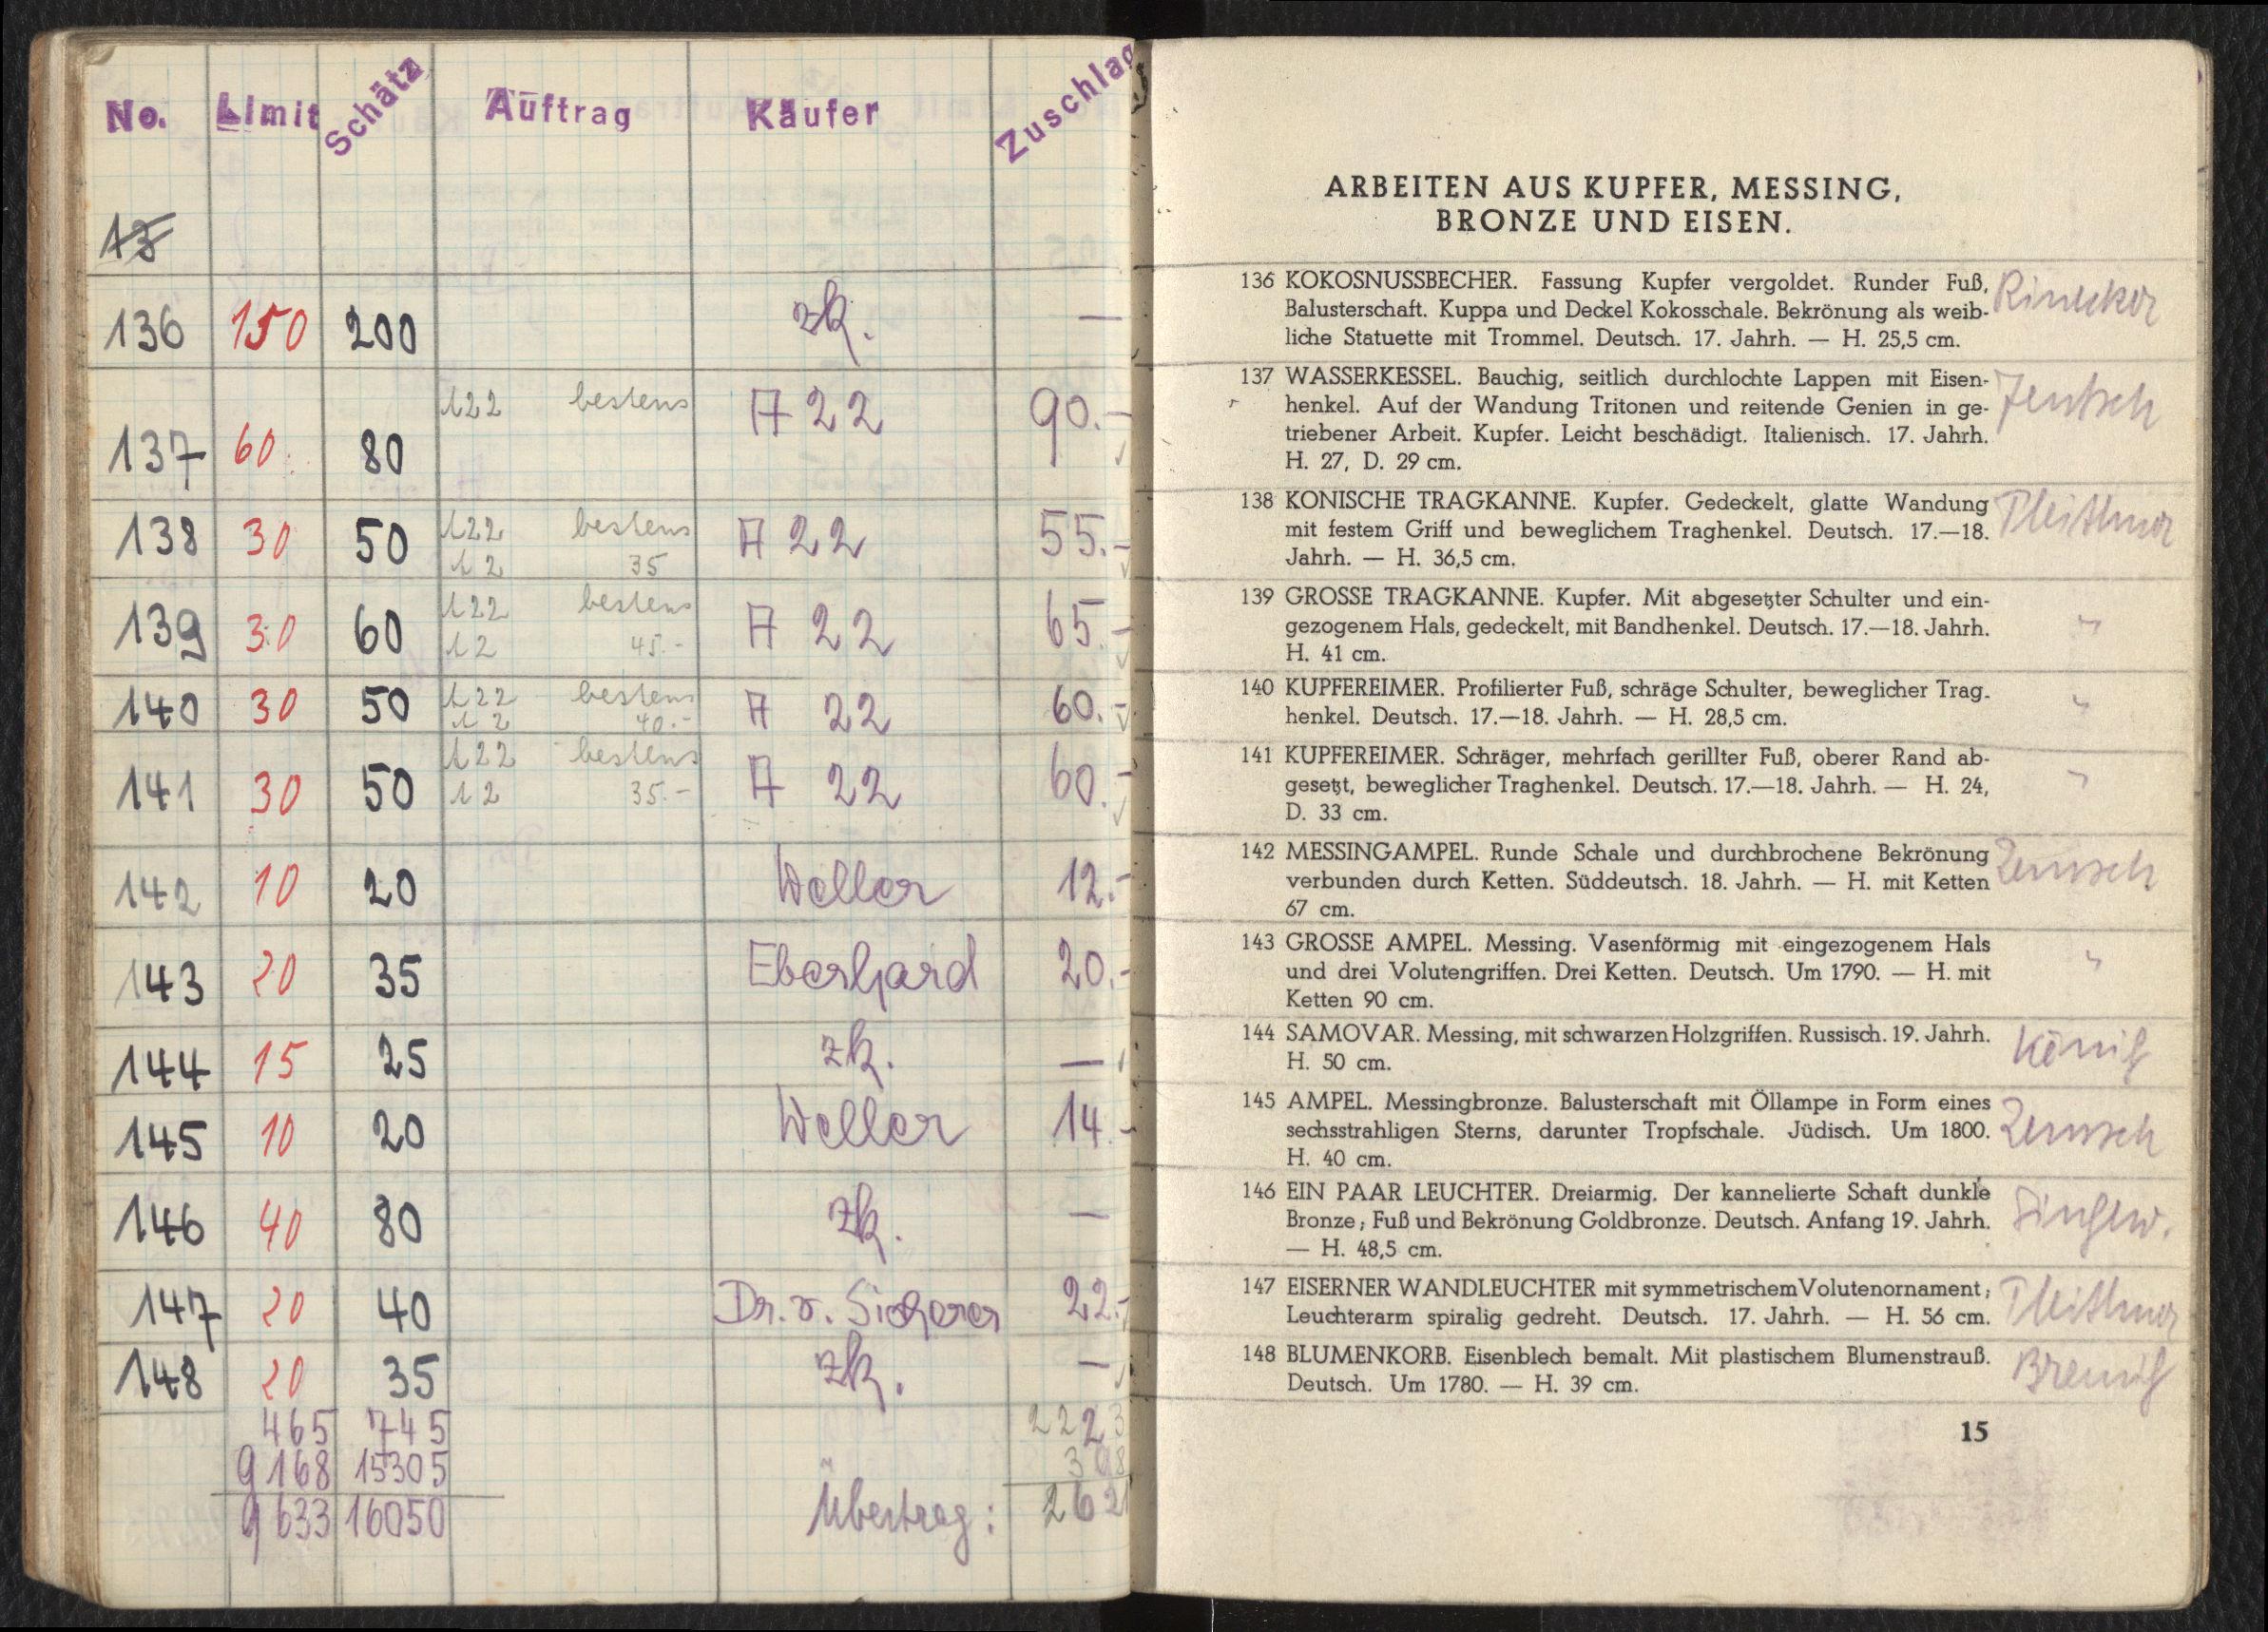 No. Limit Schätz Auftrag Käufer Zuschlag
13
136 150 200 zk. —
137 60 80 122 bestens A 22 90.-
138 30 50 122 bestens A 22 55.-
12 35
139 30 60 122 bestens A 22 65.-
12 45.-
140 30 50 122 bestens A 22 60.-
12 40.-
141 30 50 122 bestens A 22 60.-
12 35.-
142 10 20 Weller 12.-
143 20 35 Eberhard 20.-
144 15 25 zk. —
145 10 20 Weller 14.-
146 40 80 zk. —
147 20 40 Dr. v. Sicherer 22.-
148 20 35 zk. —
465 745 2223
9168 15305 398
9633 16050 Übertrag: 2621
ARBEITEN AUS KUPFER, MESSING,
BRONZE UND EISEN.
136 KOKOSNUSSBECHER. Fassung Kupfer vergoldet. Runder Fuß,
Balusterschaft. Kuppa und Deckel Kokosschale. Bekrönung als weib-
liche Statuette mit Trommel. Deutsch. 17. Jahrh. — H. 25,5 cm.
Rinecker
137 WASSERKESSEL. Bauchig, seitlich durchlochte Lappen mit Eisen-
henkel. Auf der Wandung Tritonen und reitende Genien in ge-
triebener Arbeit. Kupfer. Leicht beschädigt. Italienisch. 17. Jahrh.
H. 27, D. 29 cm.
Jentsch
138 KONISCHE TRAGKANNE. Kupfer. Gedeckelt, glatte Wandung
mit festem Griff und beweglichem Traghenkel. Deutsch. 17.—18.
Jahrh. — H. 36,5 cm.
139 GROSSE TRAGKANNE. Kupfer. Mit abgesetzter Schulter und ein-
gezogenem Hals, gedeckelt, mit Bandhenkel. Deutsch. 17.—18. Jahrh.
H. 41 cm.
"
140 KUPFEREIMER. Profilierter Fuß, schräge Schulter, beweglicher Trag-
henkel. Deutsch. 17.—18. Jahrh. — H. 28,5 cm.
"
141 KUPFEREIMER. Schräger, mehrfach gerillter Fuß, oberer Rand ab-
gesetzt, beweglicher Traghenkel. Deutsch. 17.—18. Jahrh. — H. 24,
D. 33 cm.
"
142 MESSINGAMPEL. Runde Schale und durchbrochene Bekrönung
verbunden durch Ketten. Süddeutsch. 18. Jahrh. — H. mit Ketten
67 cm.
143 GROSSE AMPEL. Messing. Vasenförmig mit eingezogenem Hals
und drei Volutengriffen. Drei Ketten. Deutsch. Um 1790. — H. mit
Ketten 90 cm.
"
144 SAMOVAR. Messing, mit schwarzen Holzgriffen. Russisch. 19. Jahrh.
H. 50 cm.
König
145 AMPEL. Messingbronze. Balusterschaft mit Öllampe in Form eines
sechsstrahligen Sterns, darunter Tropfschale. Jüdisch. Um 1800.
H. 40 cm.
146 EIN PAAR LEUCHTER. Dreiarmig. Der kannelierte Schaft dunkle
Bronze; Fuß und Bekrönung Goldbronze. Deutsch. Anfang 19. Jahrh.
— H. 48,5 cm.
147 EISERNER WANDLEUCHTER mit symmetrischem Volutenornament;
Leuchterarm spiralig gedreht. Deutsch. 17. Jahrh. — H. 56 cm.
148 BLUMENKORB. Eisenblech bemalt. Mit plastischem Blumenstrauß.
Deutsch. Um 1780. — H. 39 cm.
15